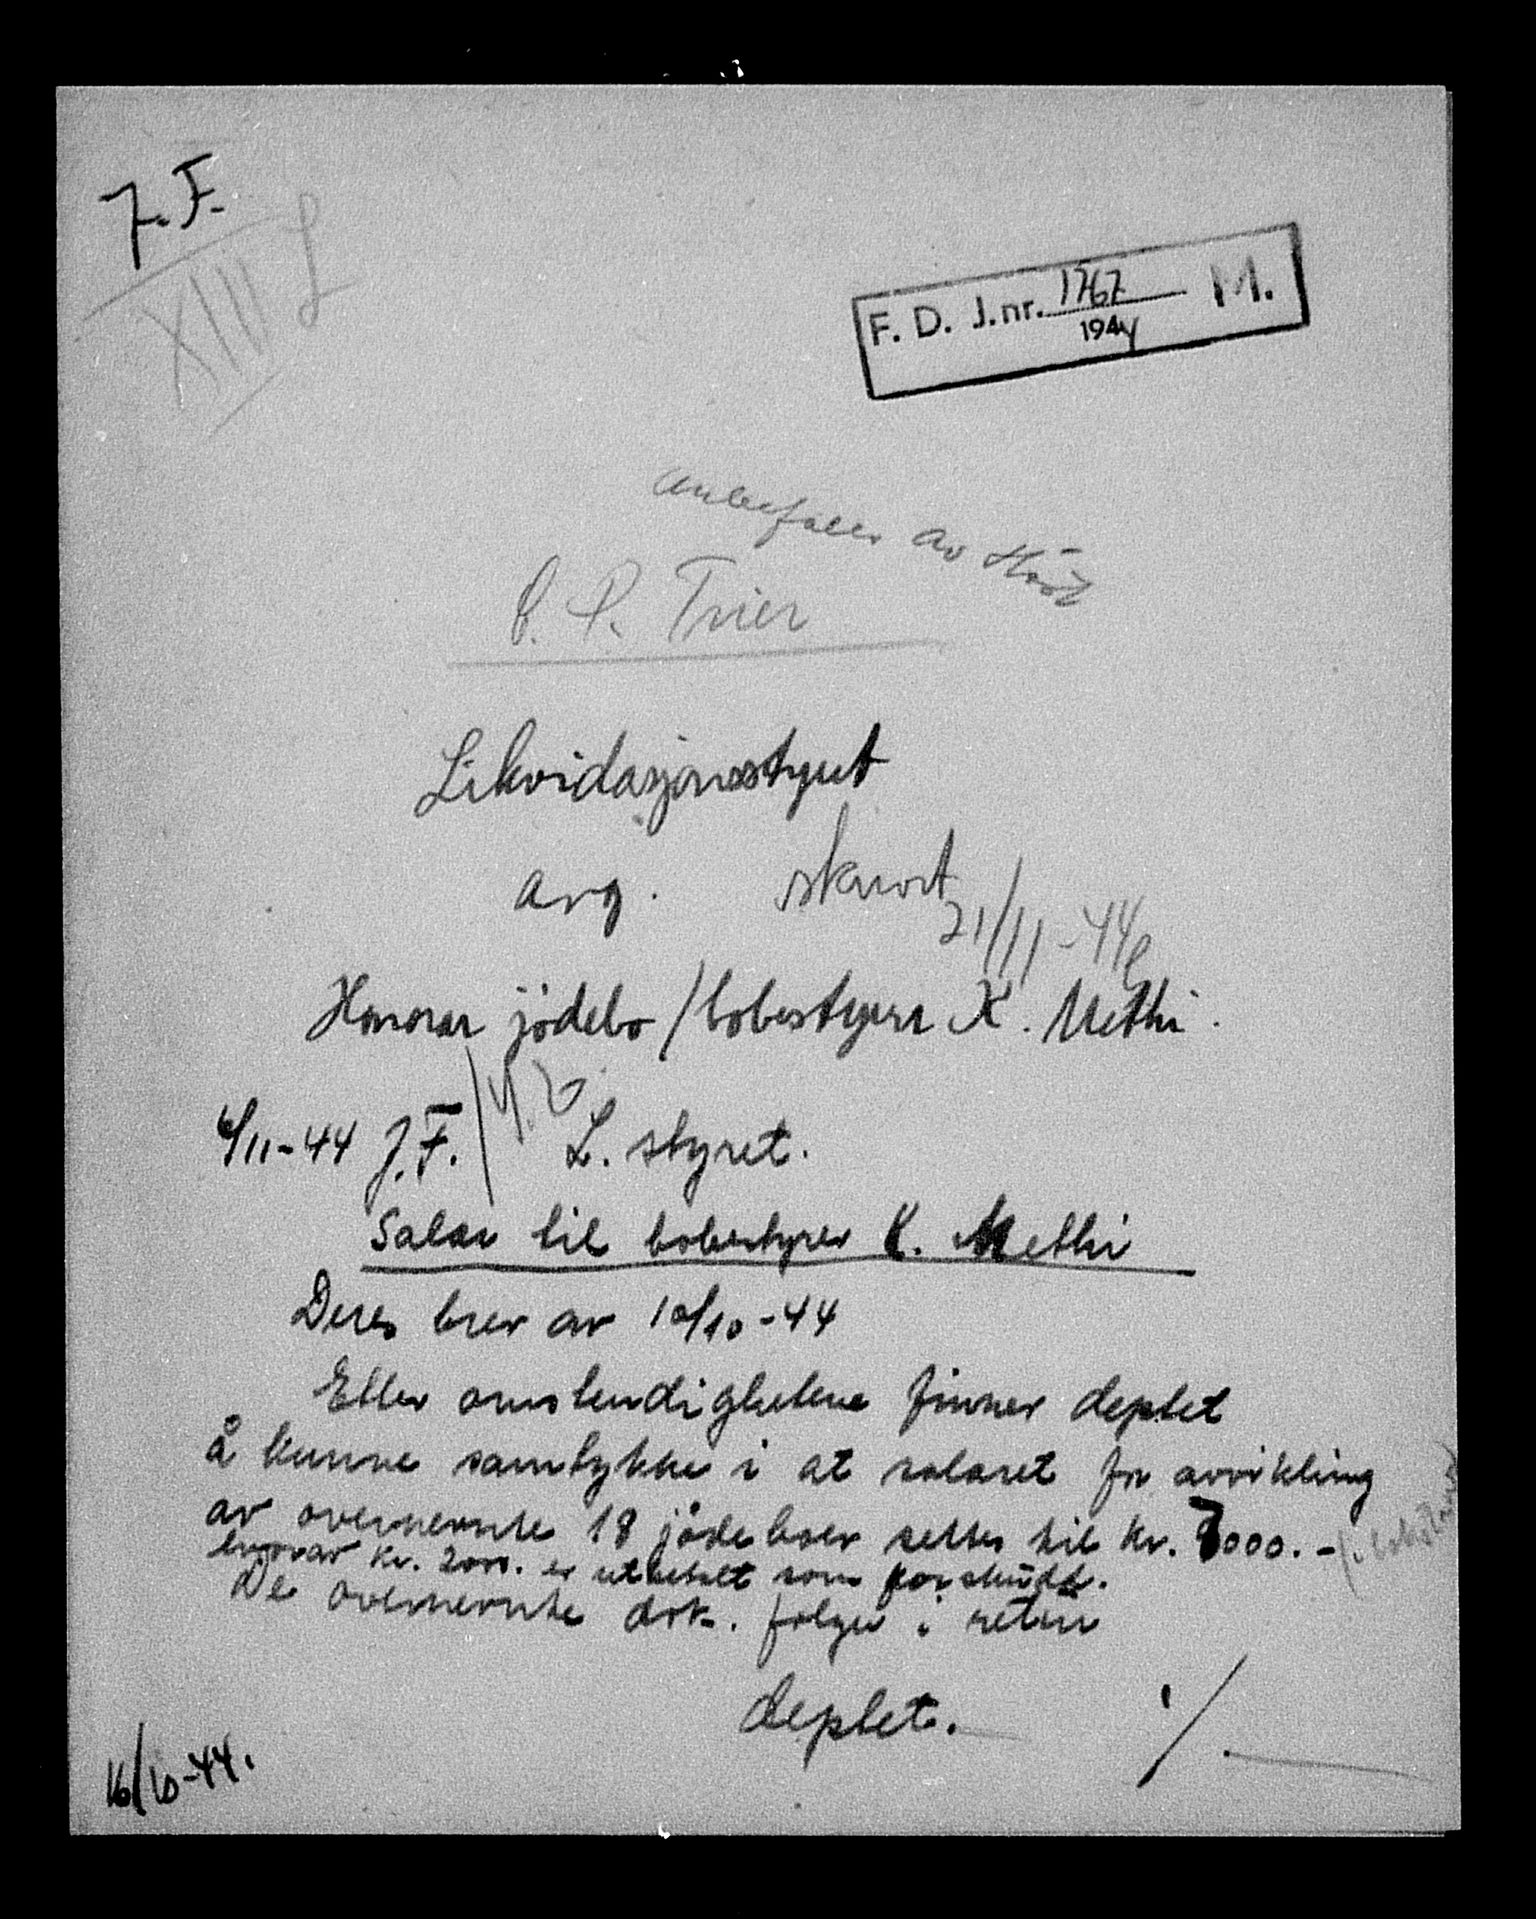 J.F.
XIII L
F. D. J.nr. 1767 M.
1944
Anbefales av
C. P. Trier
Likvidasjonsstyret
avg. skrevet
21/11-44
Honorar jödebo / bobestyrer K. Methi.
6/11-44 J.F. L. styret.
Salar til bobestyrer K. Methi
Deres brev av 10/10-44
Etter omstendighetene finner deptet
å kunne samtykke i at salaret for avvikling
av ovennevnte 18 jödeboer settes til kr. 7000.-
hvorav kr. 2000. er utbetalt som forskudd.
De ovennevnte dok. fölger i retur
deptet.
16/10-44.